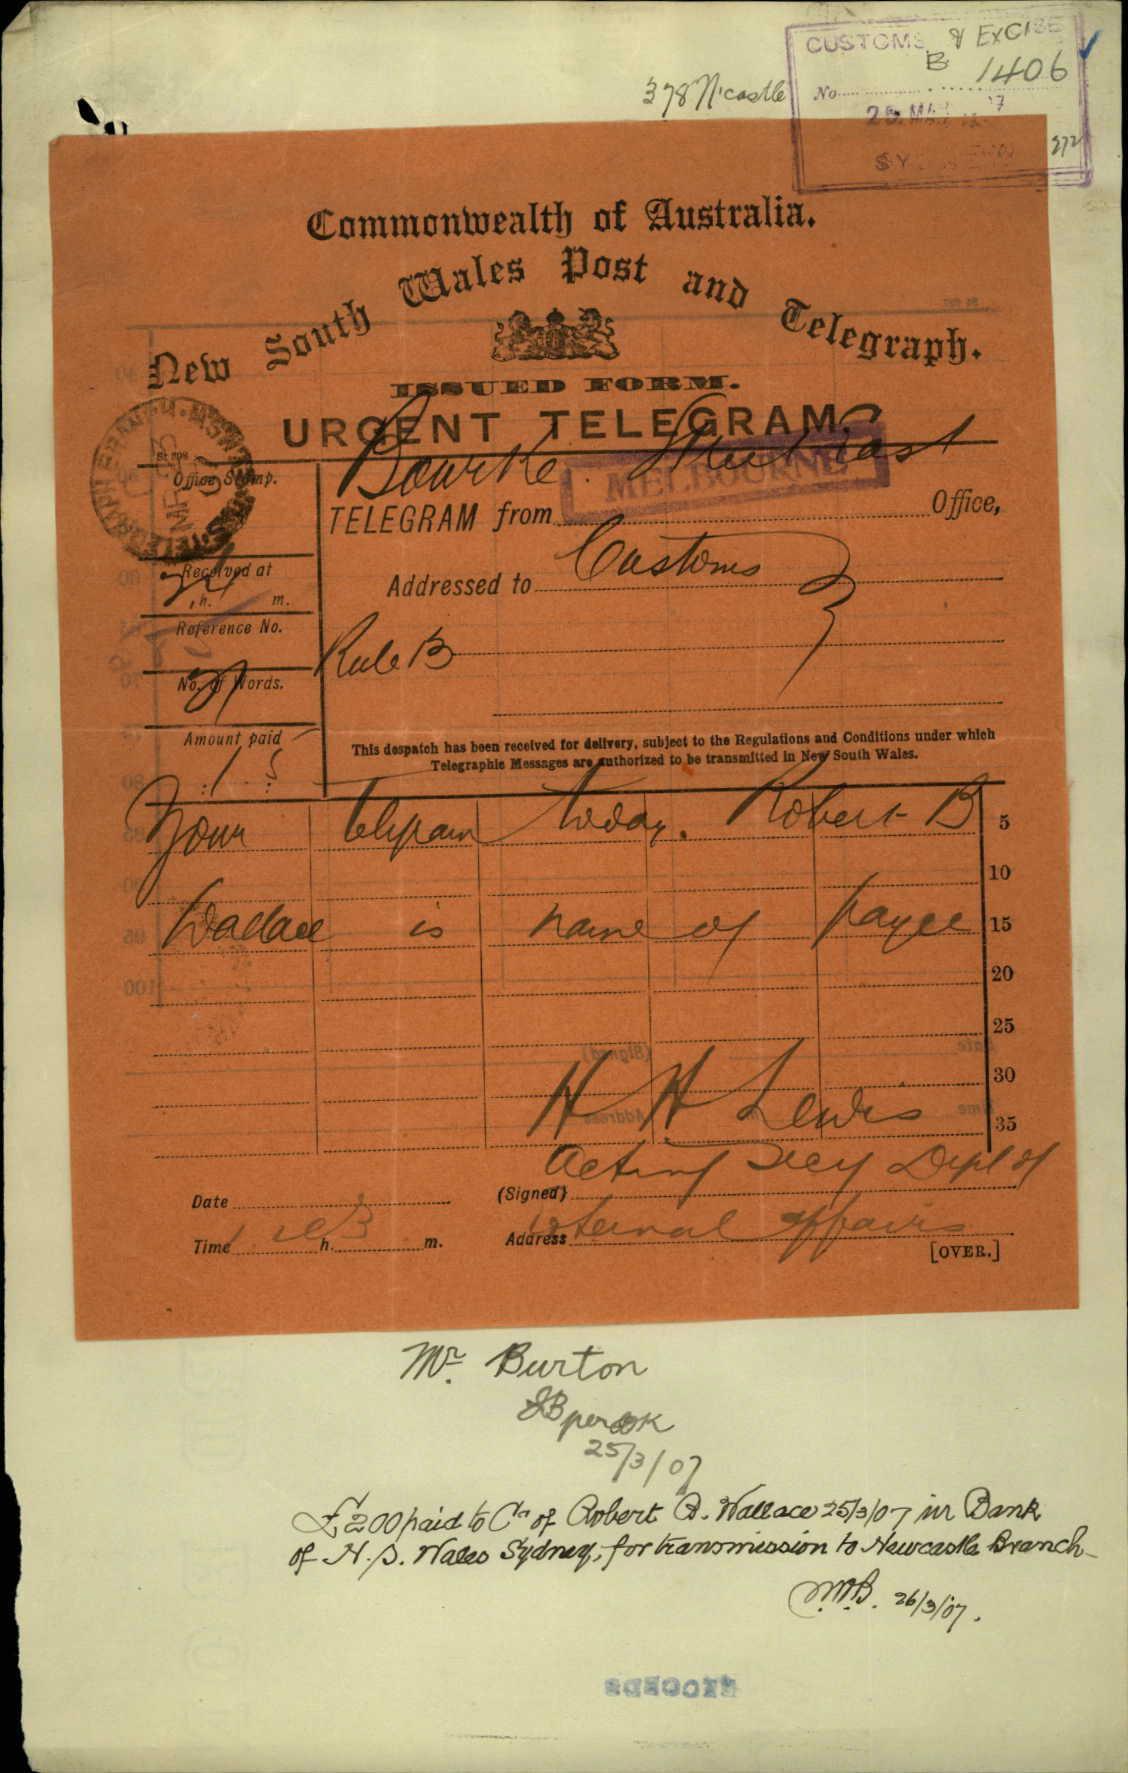 CUSTOMS & EXCISE
B 1406
No
378 N'castle
25 MAR 07
SYDNEY
272
Commonwealth of Australia.
New South Wales Post and Telegraph.
ISSUED FORM.
URGENT TELEGRAM.
Office Stamp.
Bourke Street East
MELBOURNE
TELEGRAM from Office,
Received at
h. m.
Addressed to Customs
Reference No.
Rule B
No. of Words.
Amount paid
This despatch has been received for delivery, subject to the Regulations and Conditions under which
Telegraphic Messages are authorized to be transmitted in New South Wales.
Your telegram today. Robert B 5
10
Wallace is name of payee 15
20
25
30
H H Lewis
35
Acting Secy Dept of
Date (Signed)
Internal Affairs
Time h. m. Address
[OVER.]
Mr. Burton
25/3/07
£200 paid to Cr of Robert B. Wallace 25/3/07 in Bank
of N.S. Wales Sydney, for transmission to Newcastle Branch
W.M.B. 26/3/07.
RECORDS